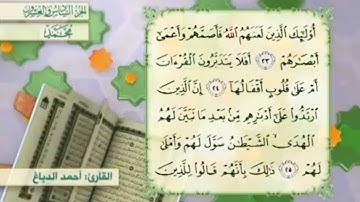 الجزء السادس والعشرون
محمد
أُو۟لَٰٓئِكَ ٱلَّذِينَ لَعَنَهُمُ ٱللَّهُ فَأَصَمَّهُمْ وَأَعْمَىٰٓ
أَبْصَٰرَهُمْ ٢٣ أَفَلَا يَتَدَبَّرُونَ ٱلْقُرْءَانَ
أَمْ عَلَىٰ قُلُوبٍ أَقْفَالُهَآ ٢٤ إِنَّ ٱلَّذِينَ
ٱرْتَدُّوا۟ عَلَىٰٓ أَدْبَٰرِهِم مِّنۢ بَعْدِ مَا تَبَيَّنَ لَهُمُ
ٱلْهُدَى ٱلشَّيْطَٰنُ سَوَّلَ لَهُمْ وَأَمْلَىٰ
لَهُمْ ٢٥ ذَٰلِكَ بِأَنَّهُمْ قَالُوا۟ لِلَّذِينَ
القارئ: أحمد الدباغ